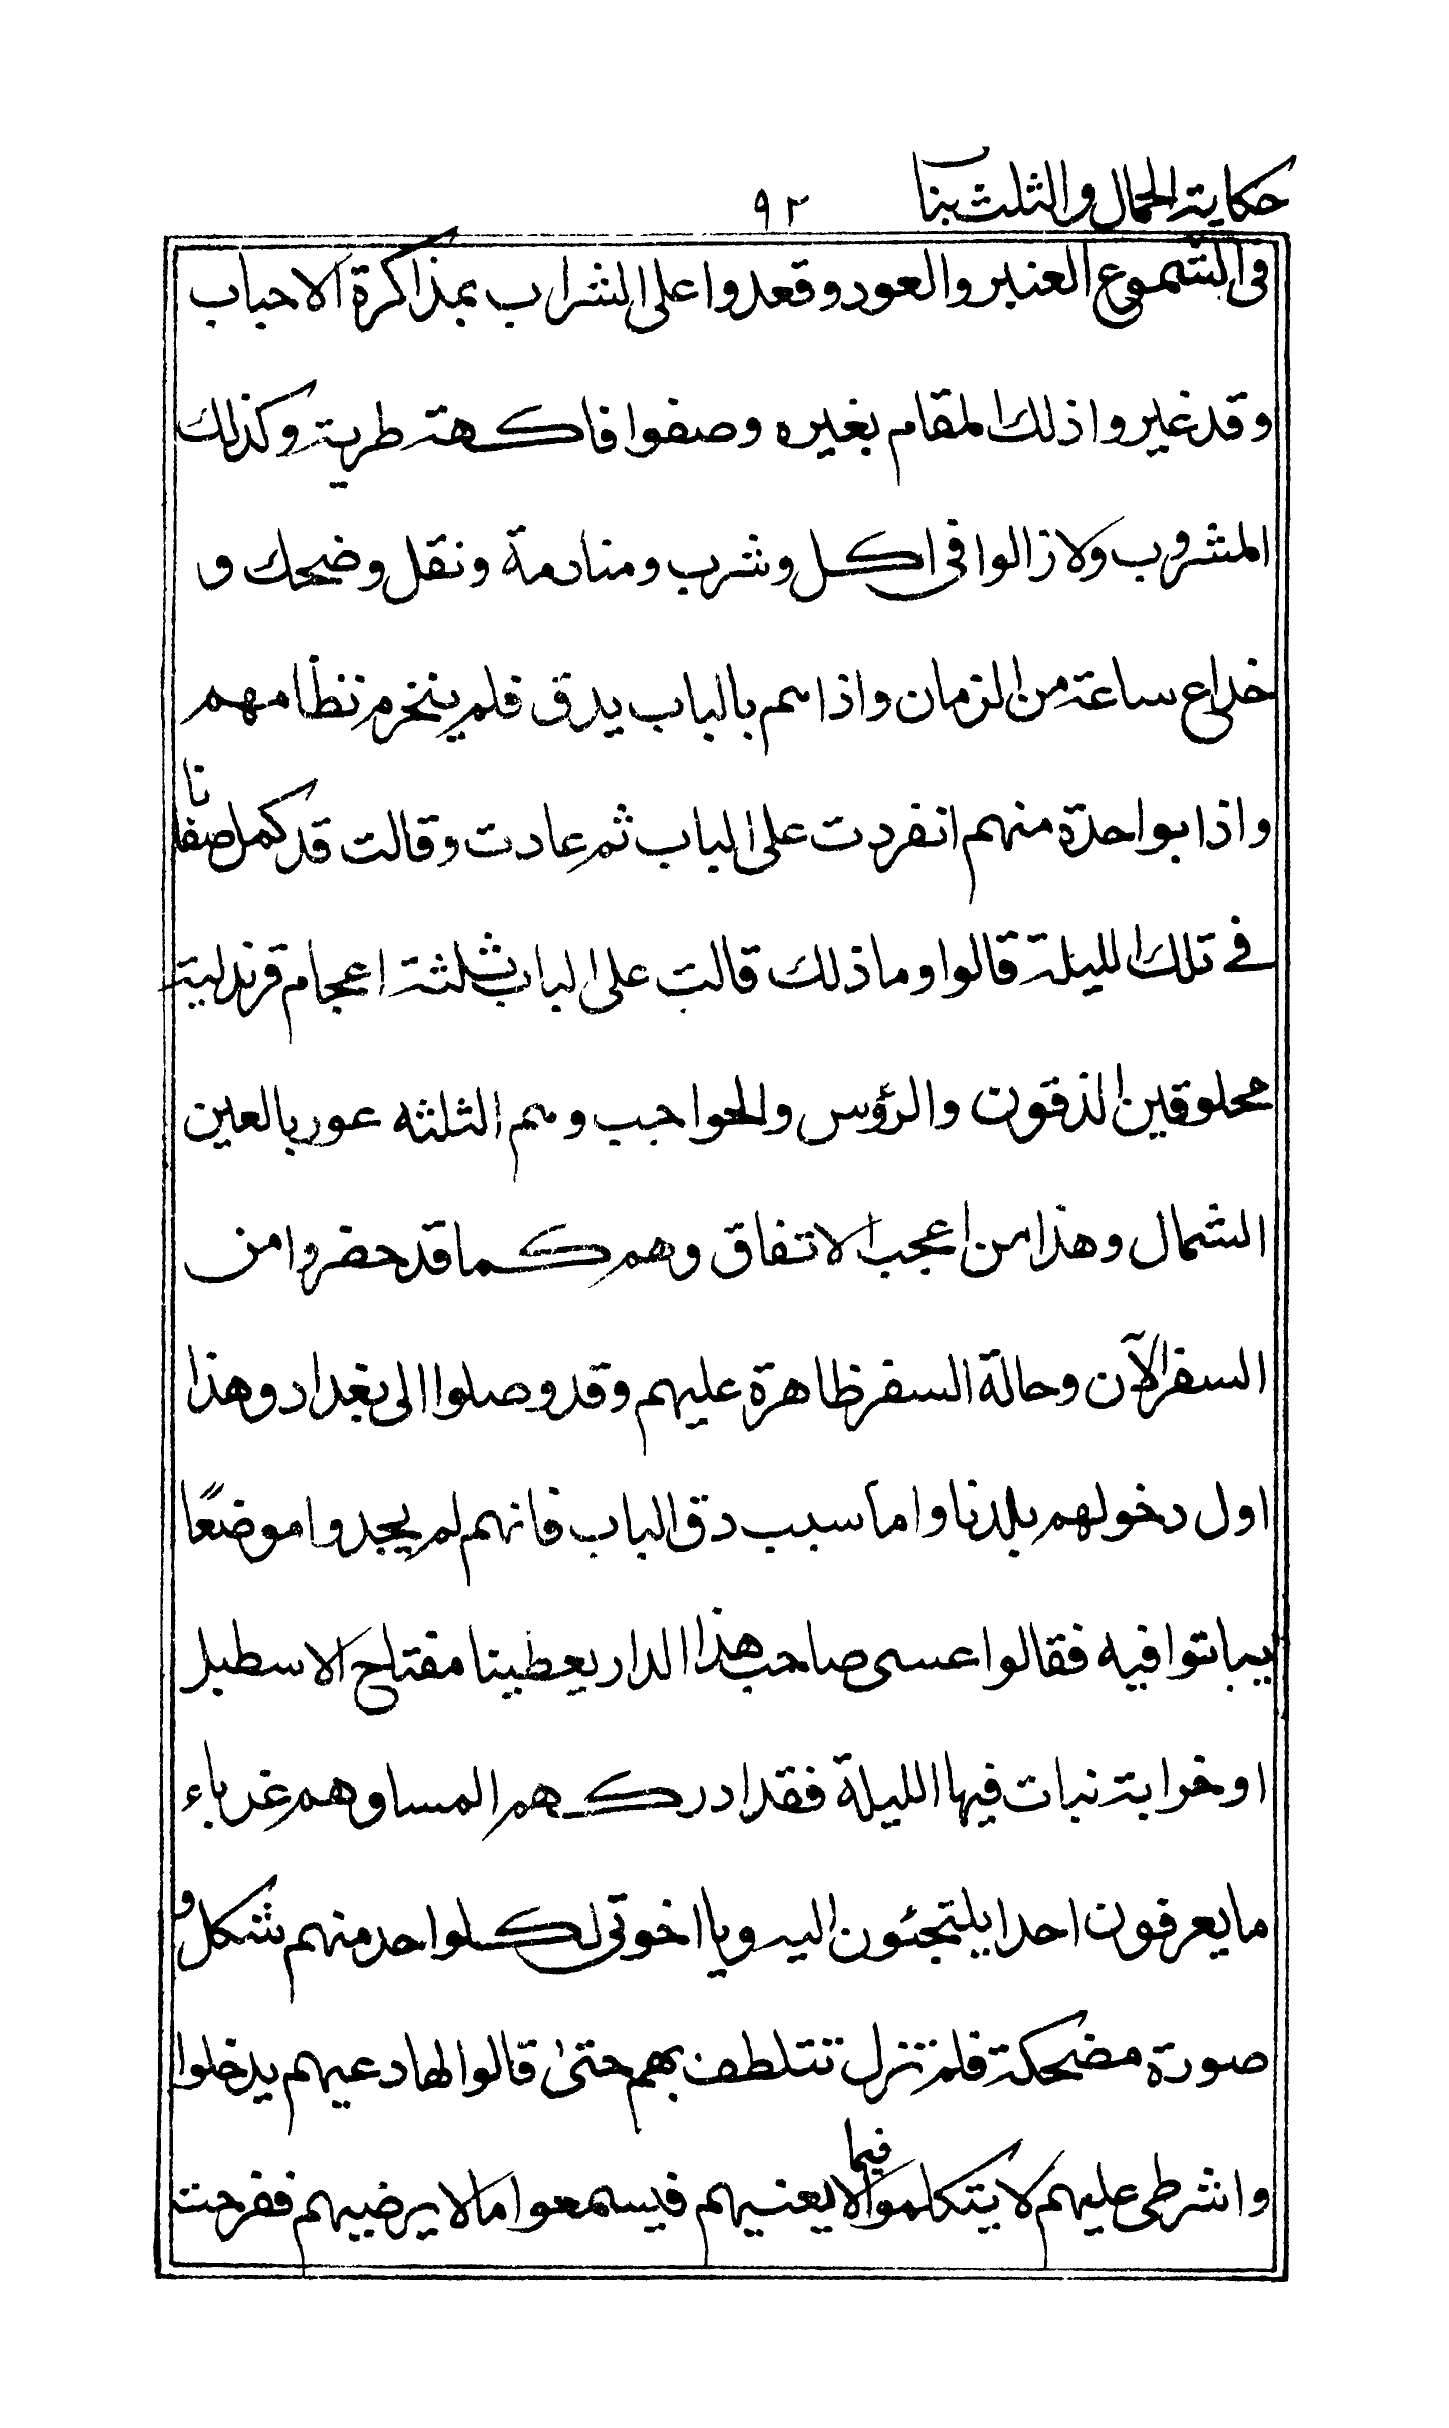 حكاية الحمال والثلث بنات
٩٢
فى الشموع العنبر والعود وقعدوا على الشراب بمذاكرة الاحباب
وقد غيروا ذلك المقام بغيره وصفوا فاكهة طرية وكذلك
المشروب ولا زالوا فى اكل وشرب ومنادمة ونقل وضحك و
خداع ساعة من الزمان واذا هم بالباب يدق فلم ينخرم نظامهم
واذا بواحدة منهم انفردت على الباب ثم عادت وقالت قد كمل صفانا
فى تلك الليلة قالوا وما ذلك قالت على الباب ثلثة اعجام قرندلية
محلوقين الذقون والرؤس والحواجب وهم الثلثه عور بالعين
الشمال وهذا من اعجب الاتفاق وهم كما قد حضروا من
السفر الآن وحالة السفر ظاهرة عليهم وقد وصلوا الى بغداد وهذا
اول دخولهم بلدنا واما سبب دق الباب فانهم لم يجدوا موضعًا
يباتوا فيه فقالوا عسى صاحب هذا الدار يعطينا مفتاح الاسطبل
او خرابة نبات فيها الليلة فقد ادركهم المسا وهم غرباء
ما يعرفون احدا يلتجئون اليه ويا اخوتى لكل واحد منهم شكل و
صورة مضحكة فلم تزل تتلطف بهم حتى قالوا لها دعيهم يدخلوا
واشرطى عليهم لا يتكلموا فيما لا يعنيهم فيسمعوا ما لا يرضيهم ففرحت